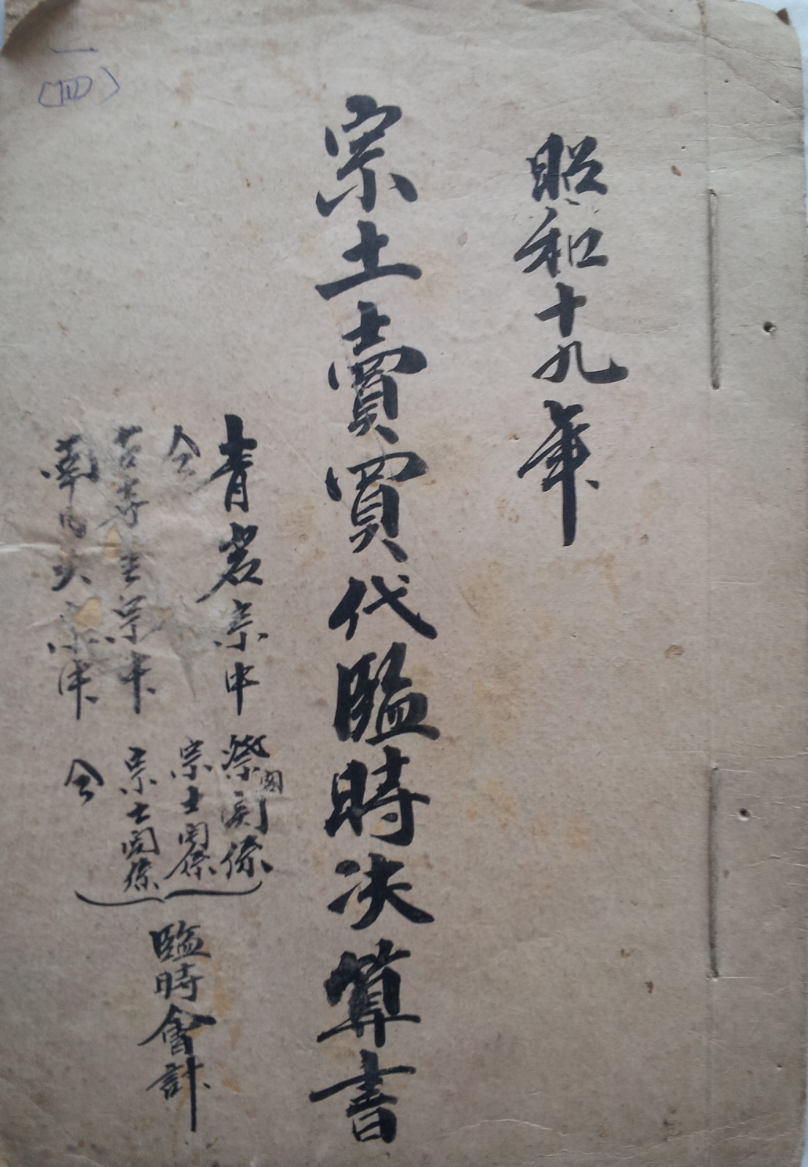 昭和十九年
宗土賣買代臨時決算書
青岩宗中 祭閣關係
仝 宗土関係
宗中 宗土関係
南 宗中 仝
臨時會計
一
(四)